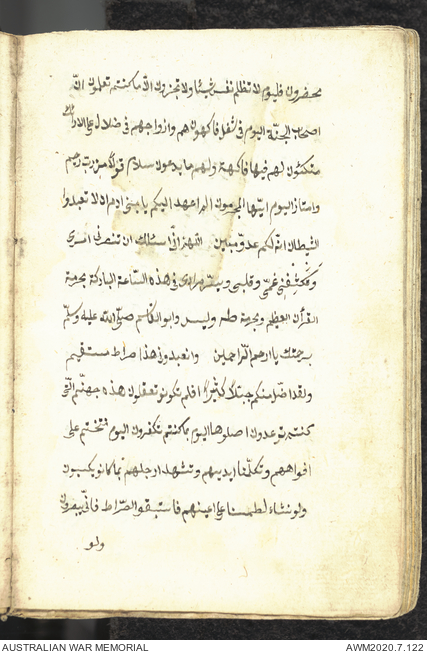 محضرون فليوم لا تظلم نفس شيئا ولا تجزون الا ما كنتم تعملون ان
اصحاب الجنّة اليوم في شغل فاكهون هم وازواجهم في ضلال على الارائك
متكئون لهم فيها فاكهة ولهم ما يدعون سلام قولا من رب رحيم
وامتاز اليوم ايّها المجرمون الم اعهد اليكم يا بني ادم ان لا تعبدوا
الشيطان انه لكم عدوّ مبين اللهمّ انّي اسئلك ان تنصرني
غمّي وقلبي مرادي في هذه السّاعة المباركة بحرمة
القرأن العظيم وبحرمة طه ويس وابو القاسم صلّى الله عليه وسلّم
برحمتك يا ارحم الرّاحمين وانعبدوني هذا صراط مستقيم
ولقد اضل منكم جبلّا كثيرا افلم تكونو تعقلون هذه جهنّم الّتي
كنتم توعدون اصلوها اليوم بما كنتم تكفرون اليوم نختم على
افواههم وتكلّمنا ايديهم وتشهد ارجلهم بما كانو يكسبون
ولو نشاء لطمسنا على اعينهم فاستبقو الصّراط فانّى يبصرون
ولو
AUSTRALIAN WAR MEMORIAL
AWM2020.7.122